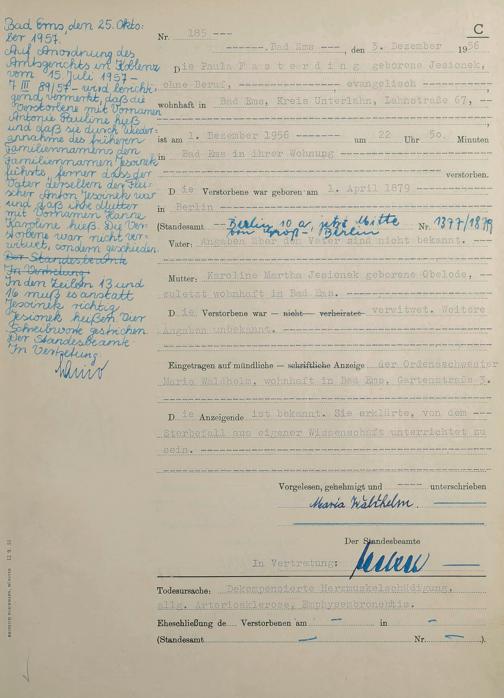 C
Nr. 185
Bad Ems, den 3. Dezember 1956
Die Paula Fasterding geborene Jesionek,
ohne Beruf, evangelisch
wohnhaft in Bad Ems, Kreis Unterlahn, Lahnstraße 67,
ist am 1. Dezember 1956 um 22 Uhr 50 Minuten
in Bad Ems in ihrer Wohnung
verstorben.
Die Verstorbene war geboren am 1. April 1879
in Berlin
(Standesamt Berlin 10 a, jetzt Mitte Nr. 1377/1879
von Groß-Berlin
Vater: Angaben über den Vater sind nicht bekannt.
Mutter: Karoline Martha Jesionek geborene Obelode,
zuletzt wohnhaft in Bad Ems.
Die Verstorbene war — nicht — verheiratet verwitwet. Weitere
Angaben unbekannt.
Eingetragen auf mündliche — schriftliche Anzeige der Ordensschwester
Maria Waldhelm, wohnhaft in Bad Ems, Gartenstraße 3.
Die Anzeigende ist bekannt. Sie erklärte, von dem
Sterbefall aus eigener Wissenschaft unterrichtet zu
sein.
Vorgelesen, genehmigt und unterschrieben
Maria Waldhelm.
Der Standesbeamte
In Vertretung:
Todesursache: Dekompensierte Herzmuskelschädigung,
allg. Arteriosklerose, Emphysembronchitis.
Eheschließung de Verstorbenen am — in —
(Standesamt — Nr. — ).
Bad Ems, den 25. Okto-
ber 1957.
Auf Anordnung des
Amtsgerichts in Koblenz
vom 15 Juli 1957 –
7 III 89/57 – wird berichti-
gend vermerkt, daß die
Verstorbene mit Vornamen
Antonie Pauline hieß
und daß sie durch Wieder-
annahme des früheren
Familiennamens den
Familiennamen Jesionek
führte, ferner daß der
Vater derselben der
Anton Jesionek war
und daß ihre Mutter
mit Vornamen Hanne
Karoline hieß. Die Ver-
storbene war nicht ver-
witwet, sondern geschieden.
Der Standesbeamte
In Vertretung:
In den Zeilen 13 und
16 muß es anstatt
Jesionek richtig
Jesionek heißen. Vier
Schreibworte gestrichen.
Der Standesbeamte
In Vertretung